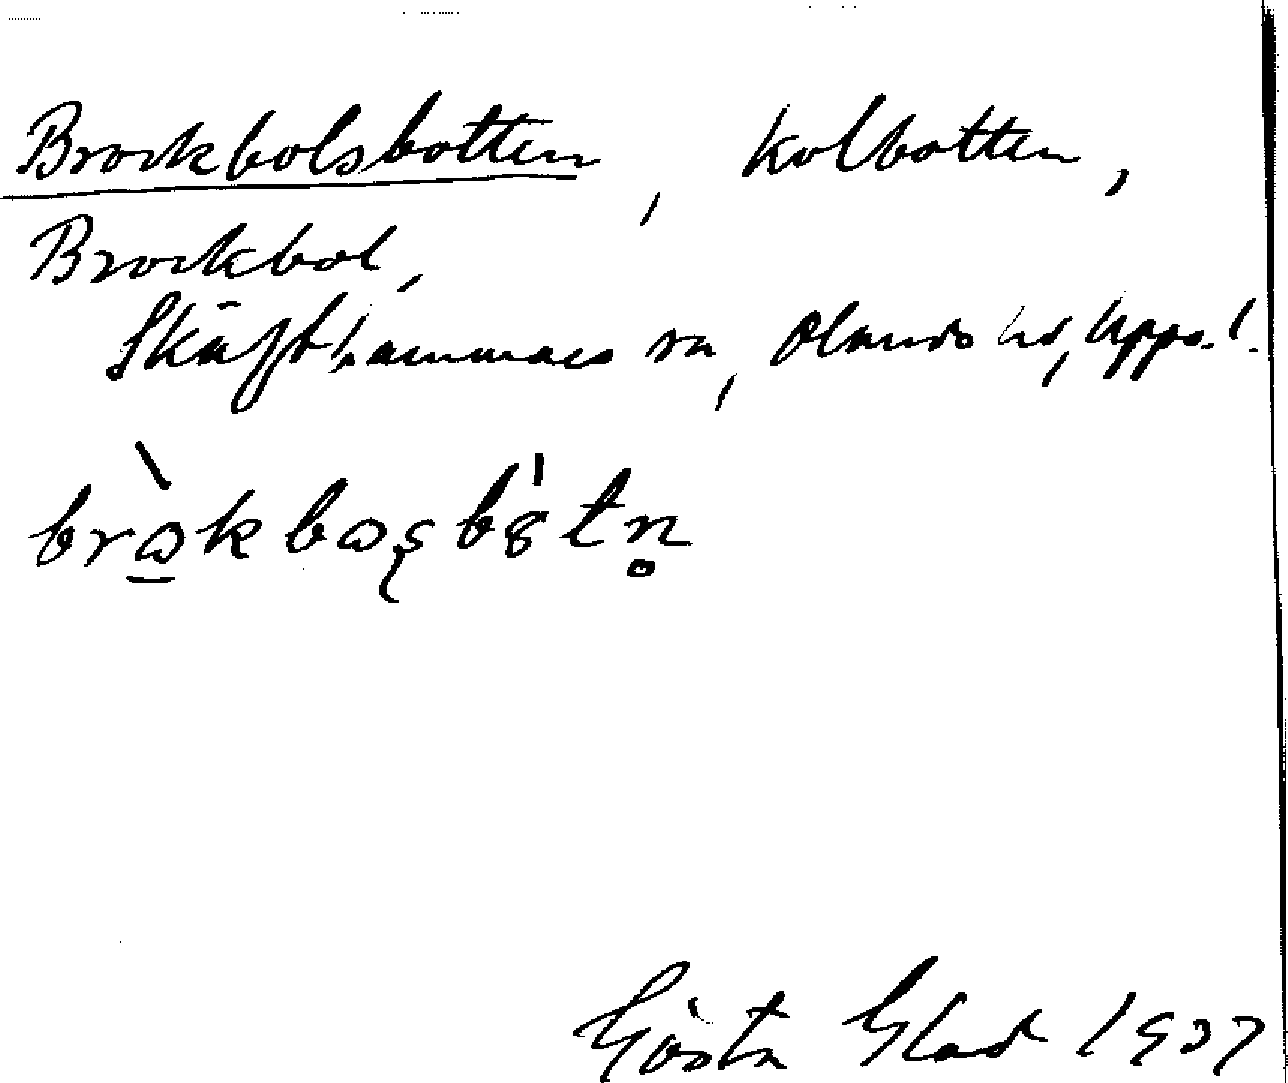 Brockbolsbotten, kolbotten,
Brockbol,
Skäfthammars sn, Olands hd, Upps. l.
Gösta Glad 1937